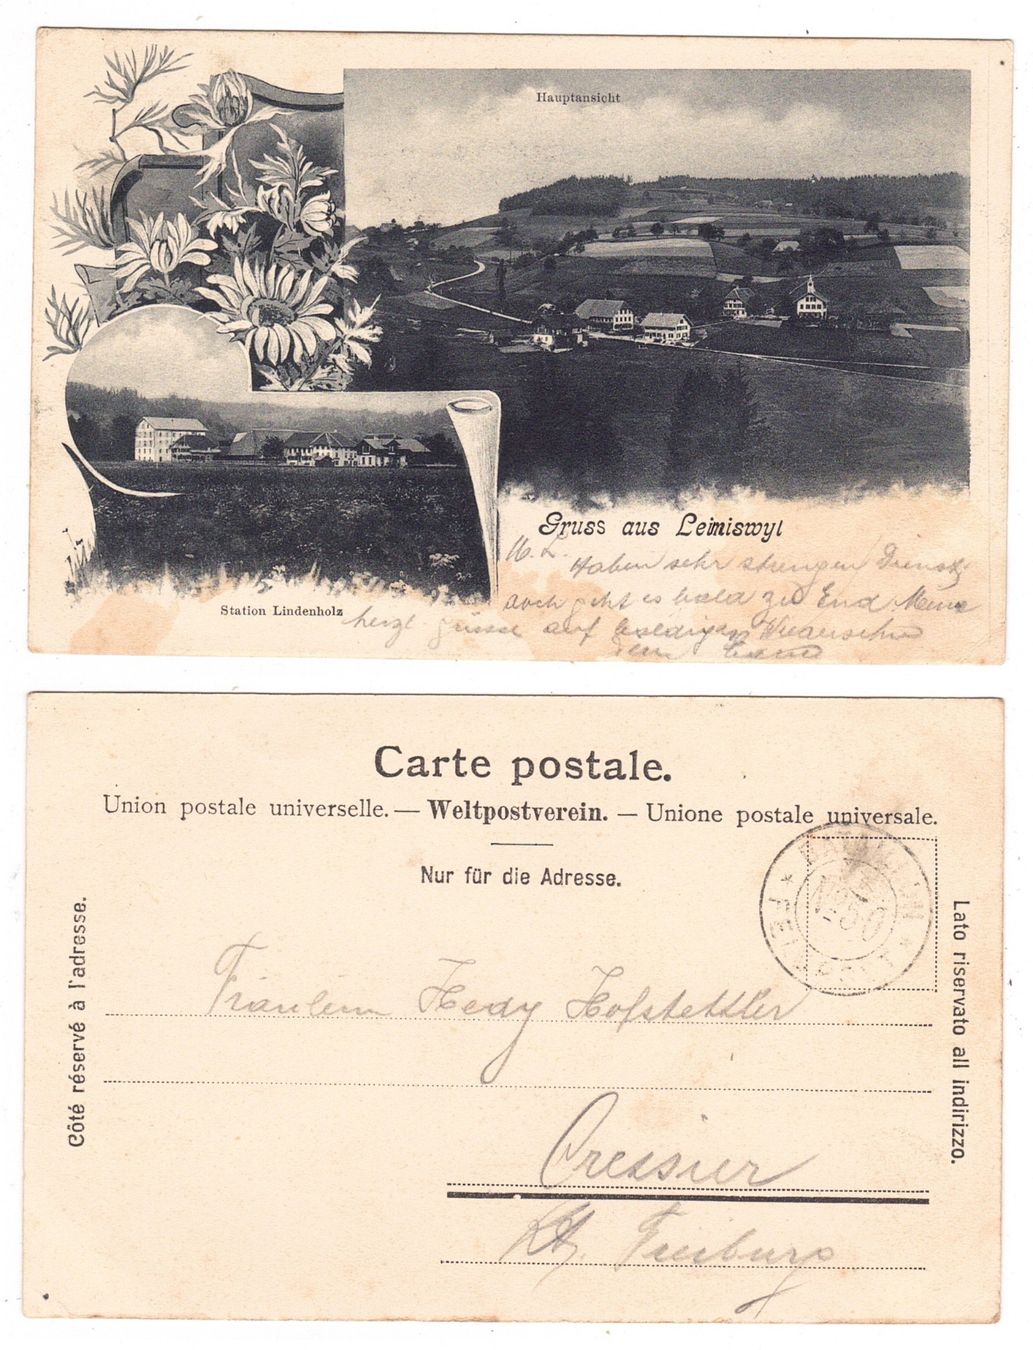 Hauptansicht
Station Lindenholz
Gruss aus Leimiswyl
M. L.
Haben sehr strengen Dienst
doch geht es bald zu End Meine
herzl. grüsse auf baldiges Wiedersehn
Carte postale.
Union postale universelle. — Weltpostverein. — Unione postale universale.
Nur für die Adresse.
Côté réservé à l'adresse.
Lato riservato all indirizzo.
BATAILLON
No
FELDPOST
Fräulein Hedy Hofstettler
Cressier
Kt. Freiburg